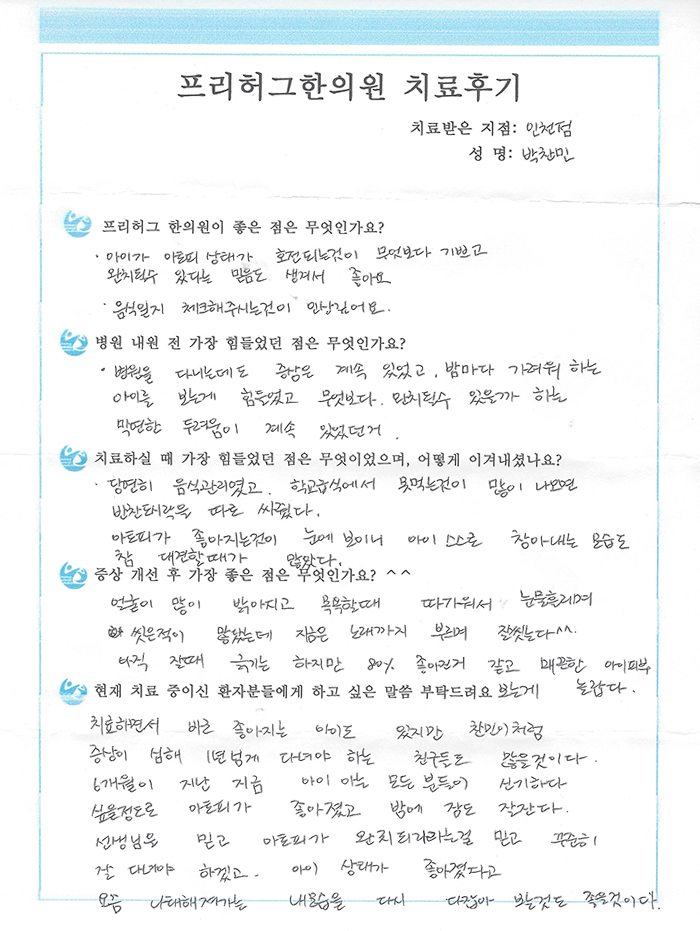 프리허그한의원 치료후기
치료받은 지점: 인천점
성 명: 박찬민
프리허그 한의원이 좋은 점은 무엇인가요?
· 아이가 아토피 상태가 호전되는것이 무엇보다 기쁘고
완치될수 있다는 믿음도 생겨서 좋아요
· 음식일지 체크해주시는것이 인상깊어요.
병원 내원 전 가장 힘들었던 점은 무엇인가요?
· 병원을 다니는데도 증상은 계속 있었고, 밤마다 가려워 하는
아이를 보는게 힘들었고 무엇보다. 완치될수 있을까 하는
막연한 두려움이 계속 있었던거.
치료하실 때 가장 힘들었던 점은 무엇이었으며, 어떻게 이겨내셨나요?
· 당연히 음식관리였고. 학교급식에서 못먹는것이 많이 나오면
반찬도시락을 따로 싸줬다.
아토피가 좋아지는것이 눈에 보이니 아이 스스로 참아내는 모습도
참 대견할때가 많았다.
증상 개선 후 가장 좋은 점은 무엇인가요? ^^
얼굴이 많이 밝아지고 목욕할때 따가워서 눈물흘리며
씻은적이 많았는데 지금은 노래까지 부르며 잘씻는다^^.
아직 잘때 긁기는 하지만 80% 좋아진거 같고 매끈한 아이피부
현재 치료 중이신 환자분들에게 하고 싶은 말씀 부탁드려요 보는게 놀랍다.
치료하면서 바로 좋아지는 아이도 있지만 찬민이처럼
증상이 심해 1년넘게 다녀야 하는 친구들도 많을것이다.
6개월이 지난 지금 아이 아는 모든 분들이 신기하다
싶을정도로 아토피가 좋아졌고 밤에 잠도 잘잔다.
선생님을 믿고 아토피가 완치되리라는걸 믿고 꾸준히
잘 다녀야 하겠고. 아이 상태가 좋아졌다고
요즘 나태해져가는 내모습을 다시 다잡아 보는것도 좋을것이다.